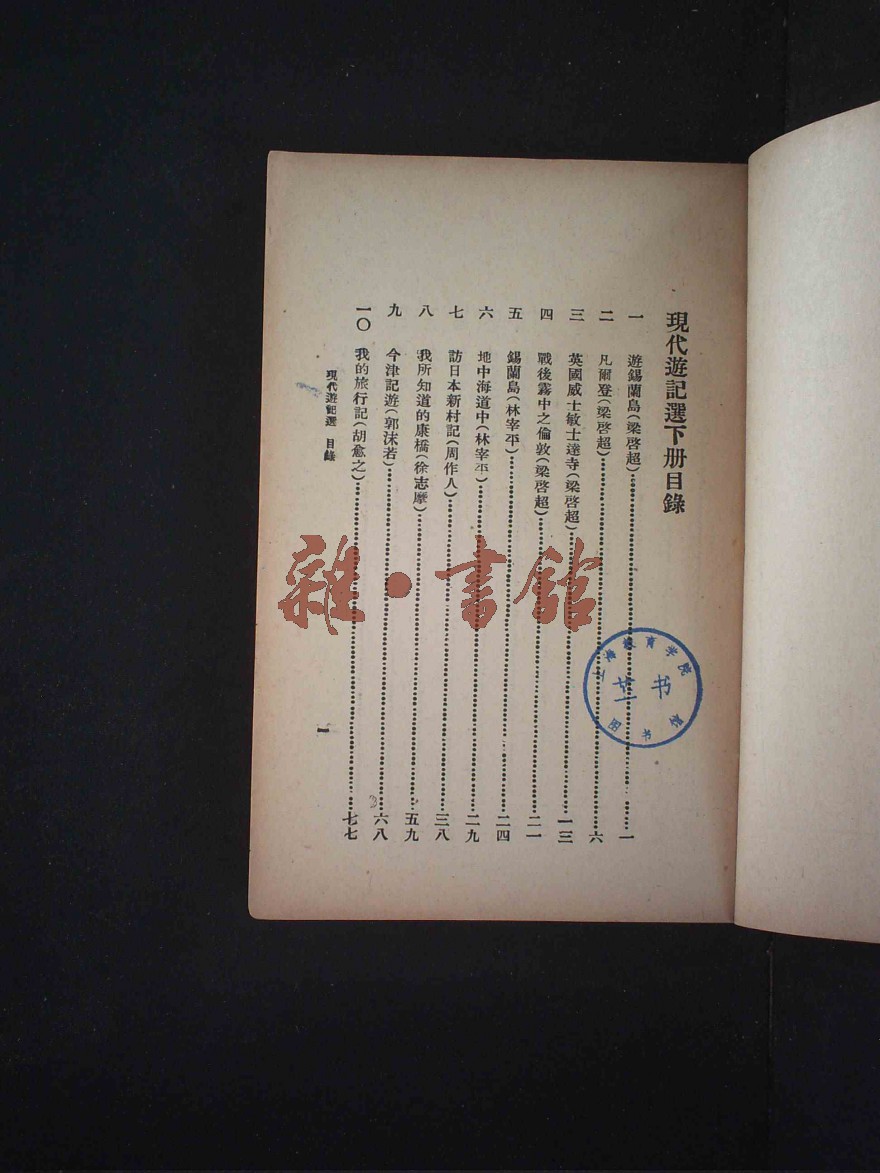 現代遊記選下册目錄
一 遊錫蘭島(梁啓超)……一
二 凡爾登(梁啓超)……六
三 英國威士敏士達寺(梁啓超)……一三
四 戰後霧中之倫敦(梁啓超)……二一
五 錫蘭島(林宰平)……二四
六 地中海道中(林宰平)……二九
七 訪日本新村記(周作人)……三八
八 我所知道的康橋(徐志摩)……五九
九 今津記遊(郭沫若)……六八
一〇 我的旅行記(胡愈之)……七七
現代遊記選 目錄
一
雜·書館
上海教育学院
图书馆